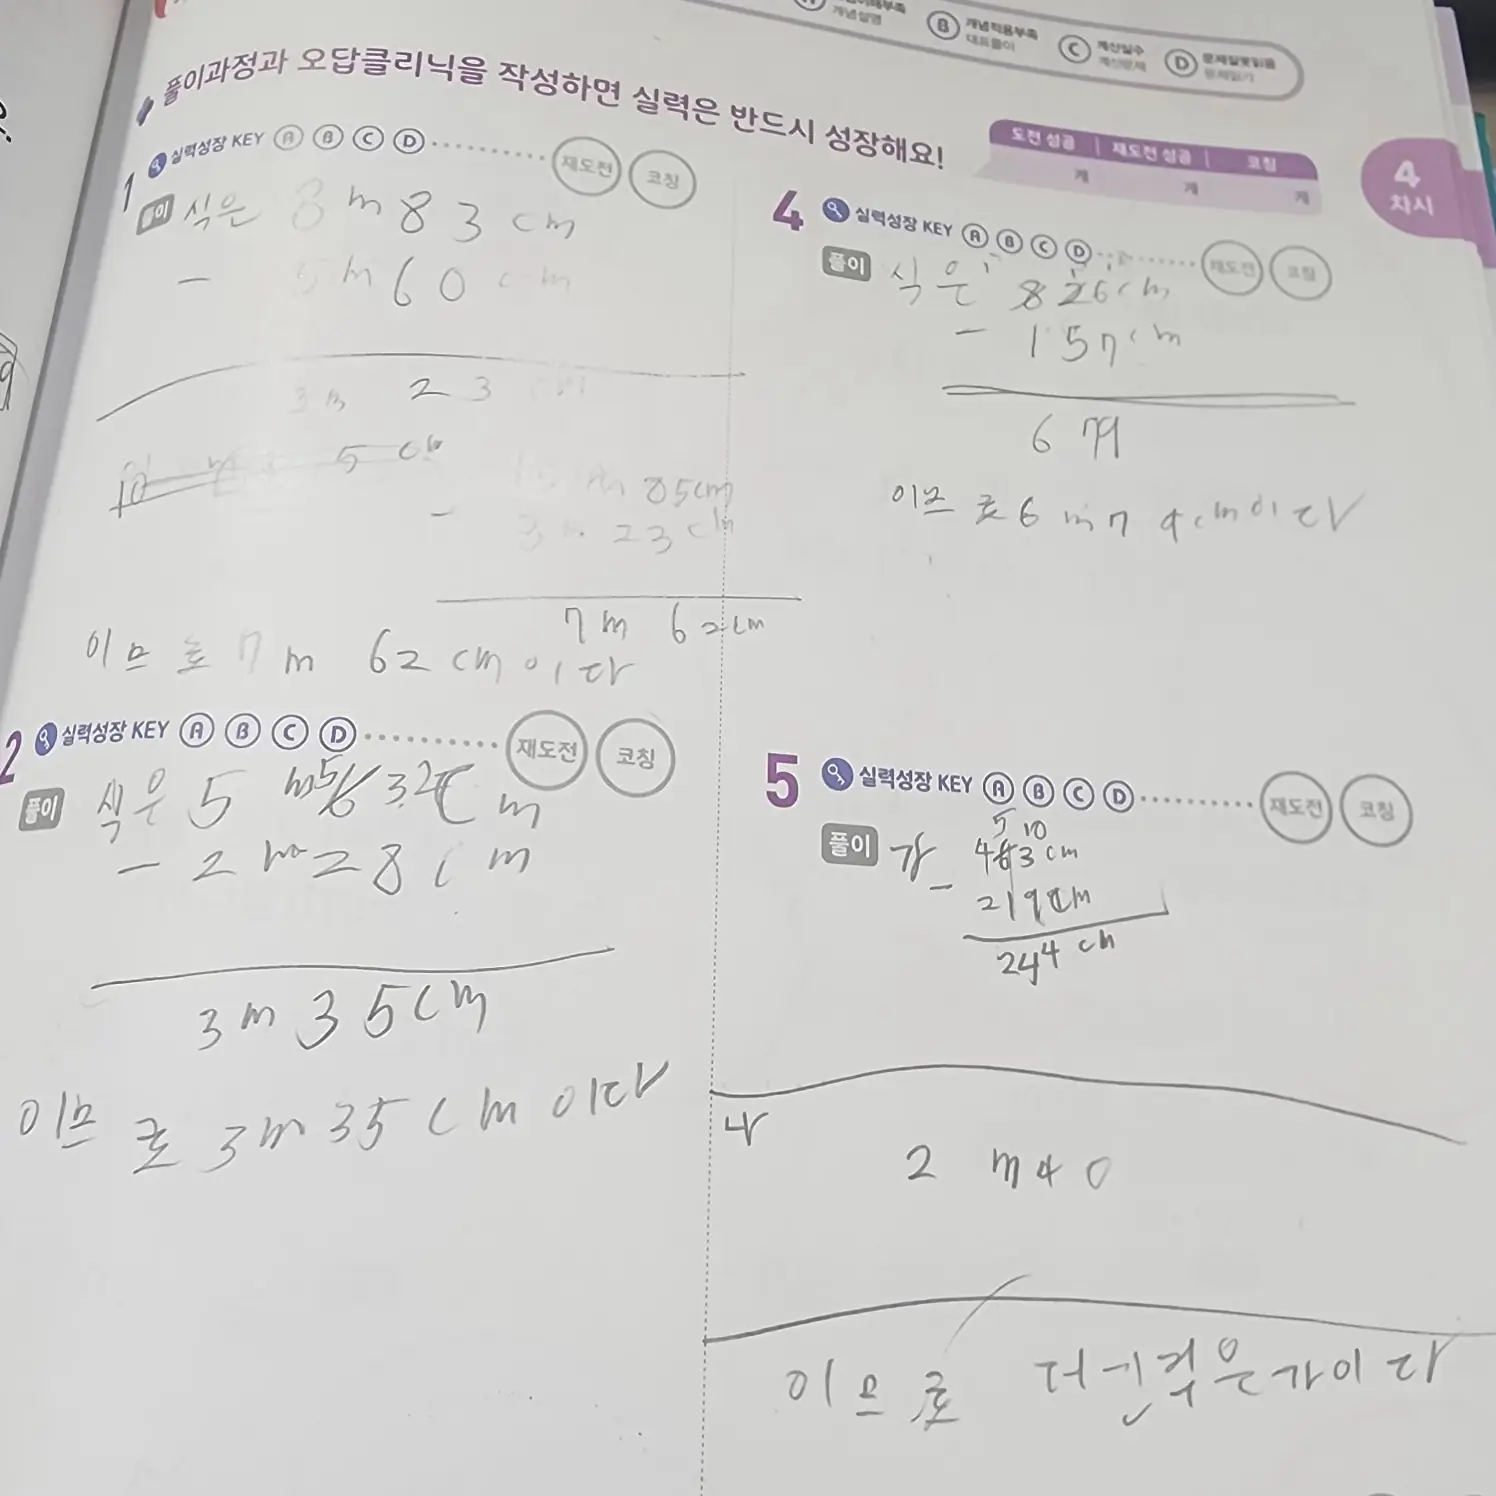 개념설명
B 개념적용부족
대표풀이
C 계산실수
계산문제
D 문제잘못읽음
문제읽기
풀이과정과 오답클리닉을 작성하면 실력은 반드시 성장해요!
도전 성공 | 재도전 성공 | 코칭
개 개 개
4
차시
1 실력성장 KEY A B C D 재도전 코칭
풀이 식은 8m 83cm
- 5m 60cm
3m 23cm
5cm
m 85cm
- 3m 23cm
7m 62cm
이므로 7m 62cm이다
2 실력성장 KEY A B C D 재도전 코칭
풀이 식은 5m
- 2m 28cm
3m 35cm
이므로 3m 35cm이다
4 실력성장 KEY A B C D 재도전 코칭
풀이 식은 826cm
- 157cm
6
이므로 6m 7 cm이다
5 실력성장 KEY A B C D 재도전 코칭
5 10
풀이 가 463cm
- 219cm
244cm
나
2m40
이므로 더 긴 것은 가이다